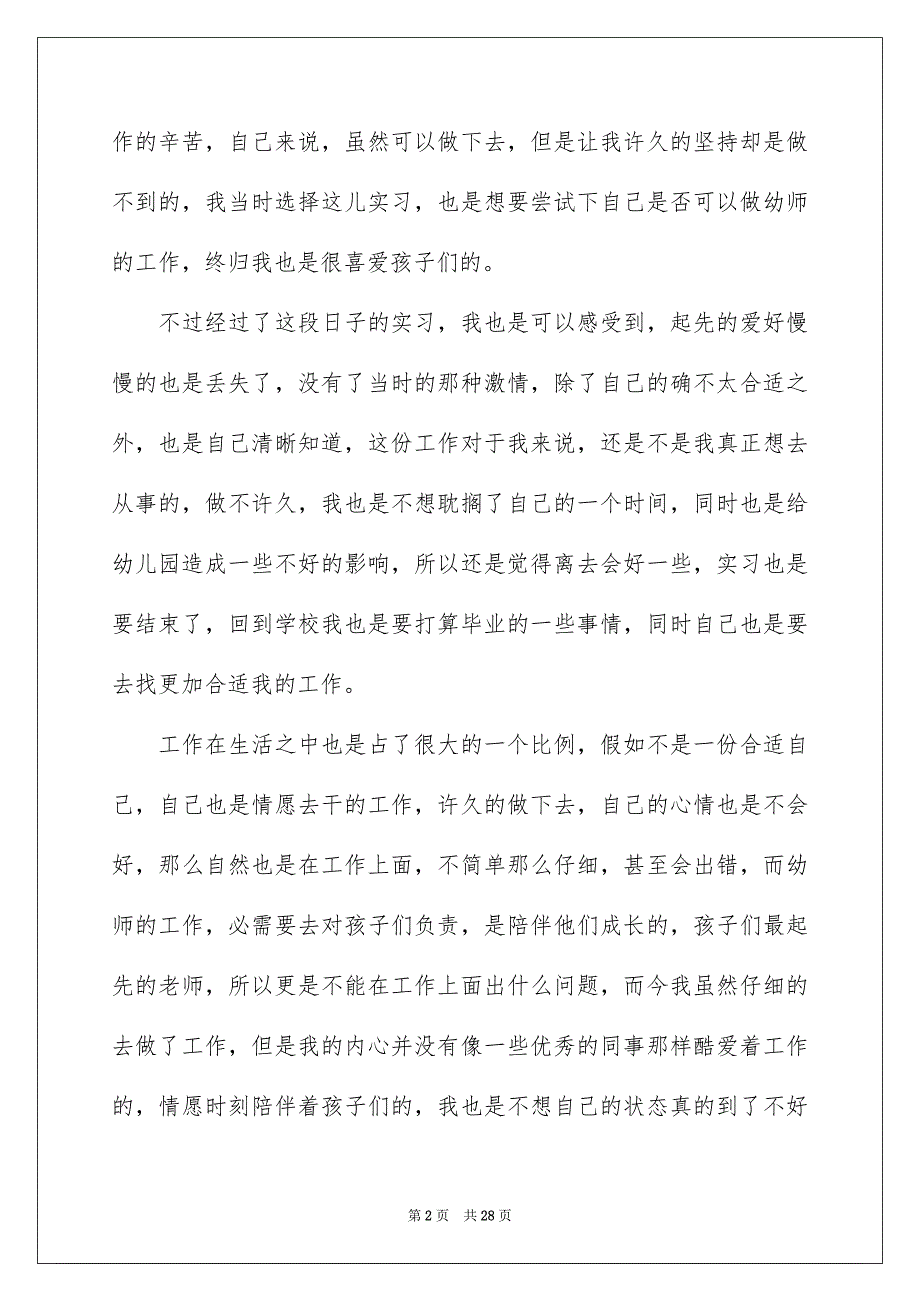 作的辛苦，自己来说，虽然可以做下去，但是让我许久的坚持却是做
不到的，我当时选择这儿实习，也是想要尝试下自己是否可以做幼师
的工作，终归我也是很喜爱孩子们的。
不过经过了这段日子的实习，我也是可以感受到，起先的爱好慢
慢的也是丢失了，没有了当时的那种激情，除了自己的确不太合适之
外，也是自己清晰知道，这份工作对于我来说，还是不是我真正想去
从事的，做不许久，我也是不想耽搁了自己的一个时间，同时也是给
幼儿园造成一些不好的影响，所以还是觉得离去会好一些，实习也是
要结束了，回到学校我也是要打算毕业的一些事情，同时自己也是要
去找更加合适我的工作。
工作在生活之中也是占了很大的一个比例，假如不是一份合适自
己，自己也是情愿去干的工作，许久的做下去，自己的心情也是不会
好，那么自然也是在工作上面，不简单那么仔细，甚至会出错，而幼
师的工作，必需要去对孩子们负责，是陪伴他们成长的，孩子们最起
先的老师，所以更是不能在工作上面出什么问题，而今我虽然仔细的
去做了工作，但是我的内心并没有像一些优秀的同事那样酷爱着工作
的，情愿时刻陪伴着孩子们的，我也是不想自己的状态真的到了不好
第 2 页 共 28 页